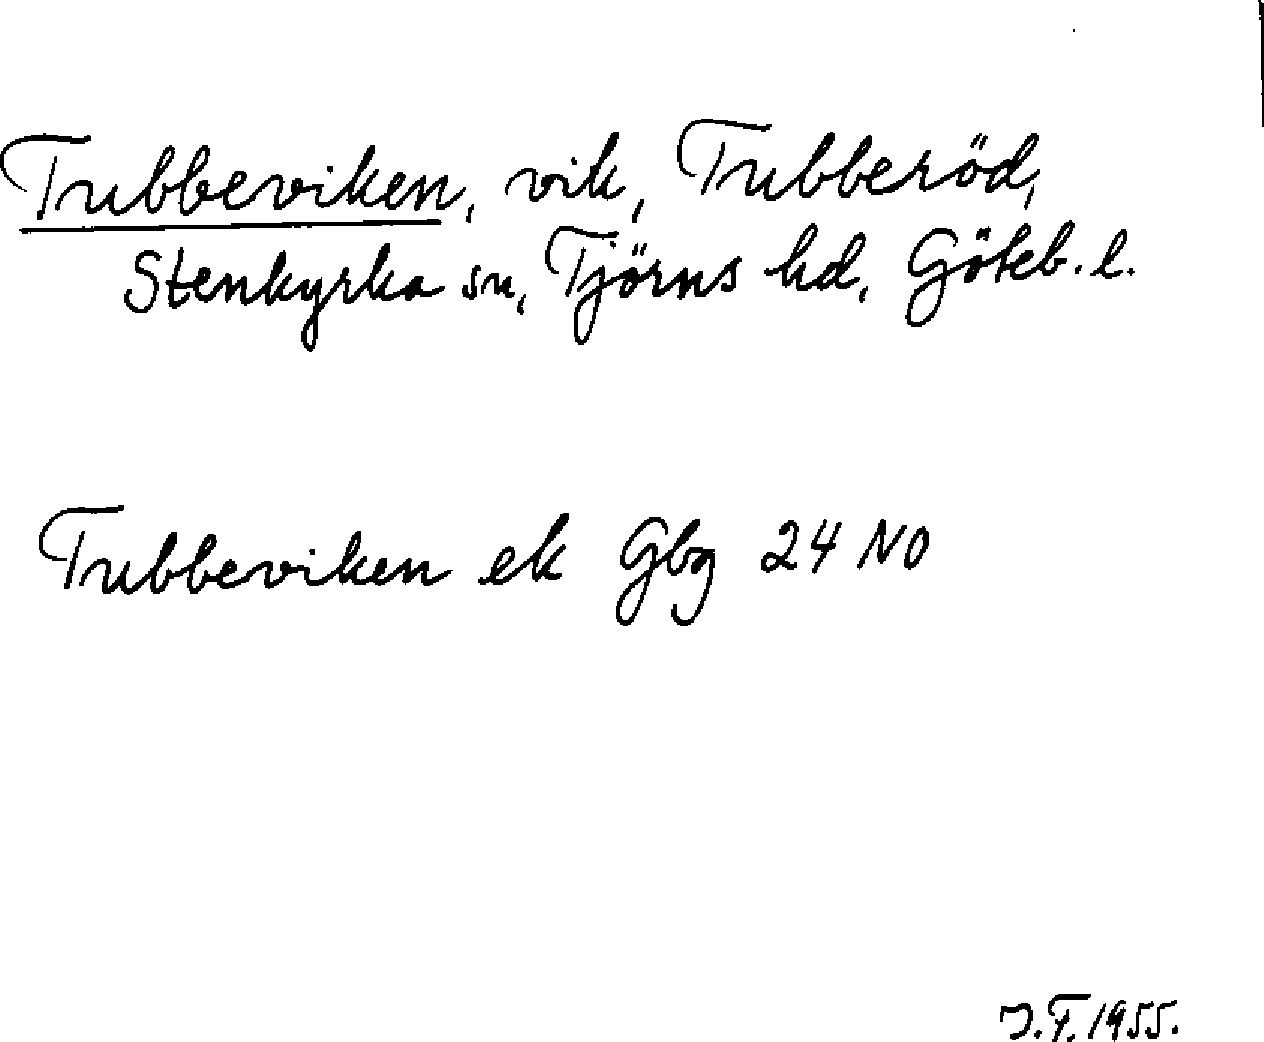 Tubbeviken, vik, Tubberöd,
Stenkyrka sn, Tjörns hd, Göteb. l.
Tubbeviken ek Gbg 24 NO
J.F. 1955.